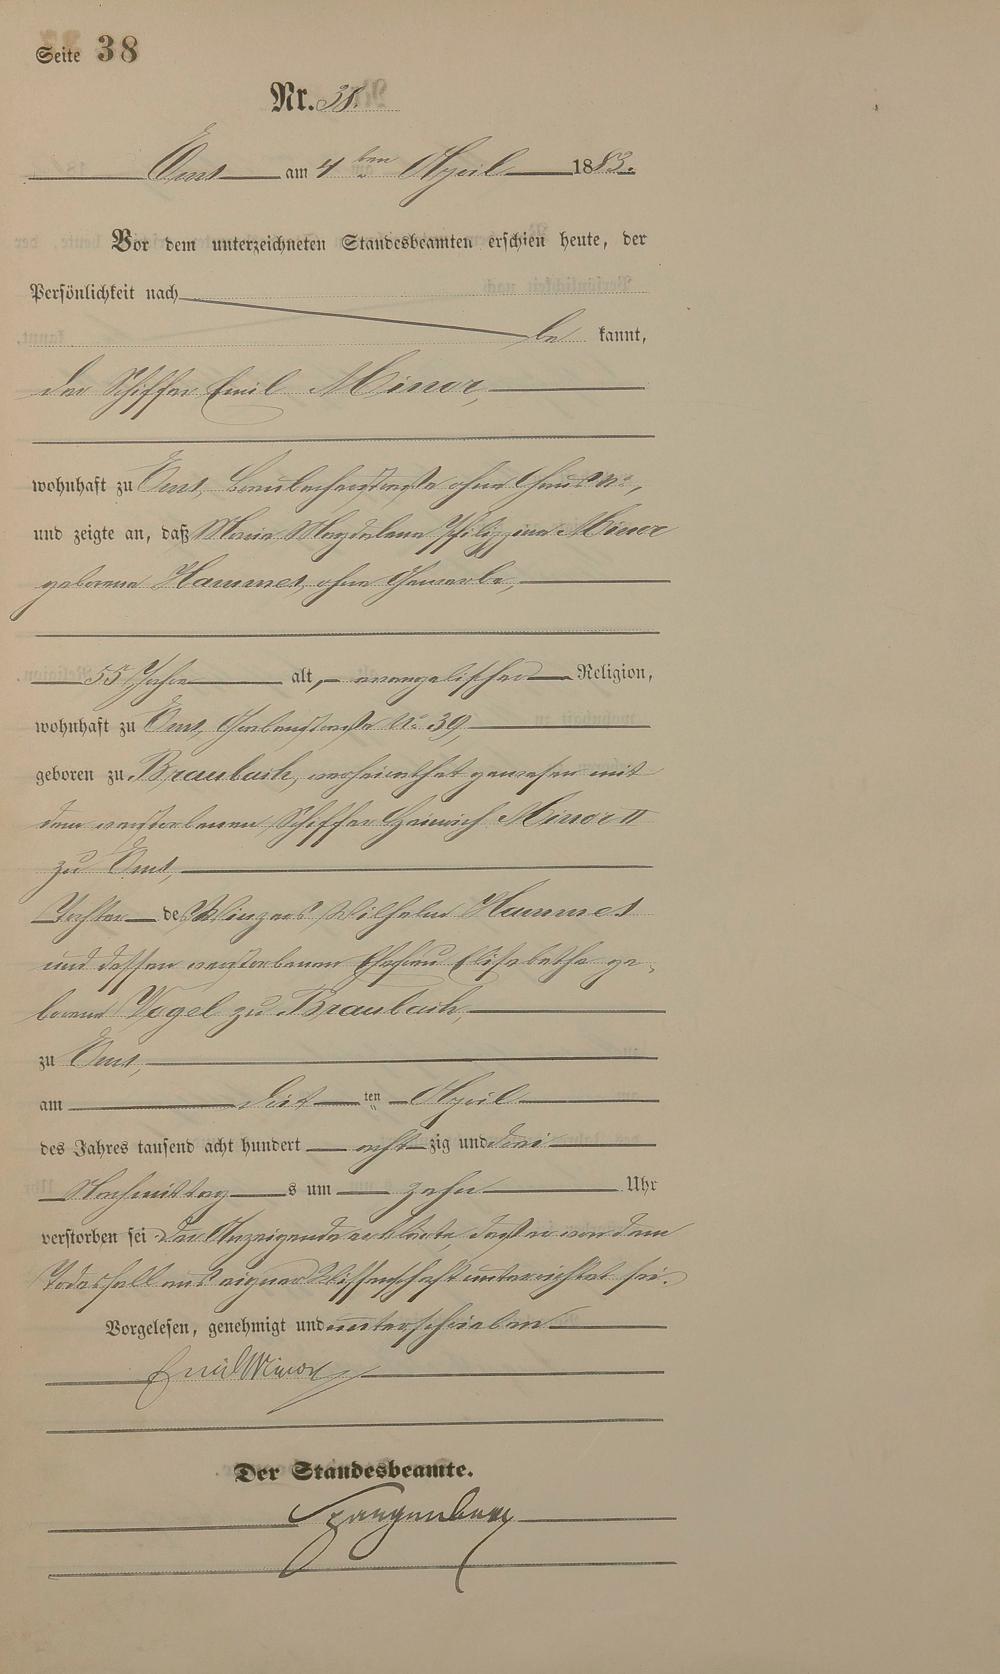 Seite 38
Nr. 38.
Ems am 4ten April 1883.
Vor dem unterzeichneten Standesbeamten erschien heute, der
Persönlichkeit nach
be kannt,
der Schiffer Emil Minor,
wohnhaft zu Ems, Braubacherstraße ohne Haus No,
und zeigte an, daß Maria Magdalena Philippine Minor
geborene Hammes, ohne Gewerbe,
55 Jahre alt, evangelischer Religion,
wohnhaft zu Ems, Grabenstraße No 39
geboren zu Braubach, verheirathet gewesen mit
dem verstorbenen Schiffer Heinrich Minor II
zu Ems,
Tochter des Winzers Wilhelm Hammes
und dessen verstorbenen Ehefrau Elisabetha ge-
borene Vogel zu Braubach,
zu Ems,
am ten April
des Jahres tausend acht hundert acht zig und drei
Nachmittag s um zehn Uhr
verstorben sei Der Anzeigende erklärte, daß er von dem
Todesfall aus eigner Wissenschaft unterrichtet sei.
Vorgelesen, genehmigt und unterschrieben
Emil Minor
Der Standesbeamte.
Spangenberg